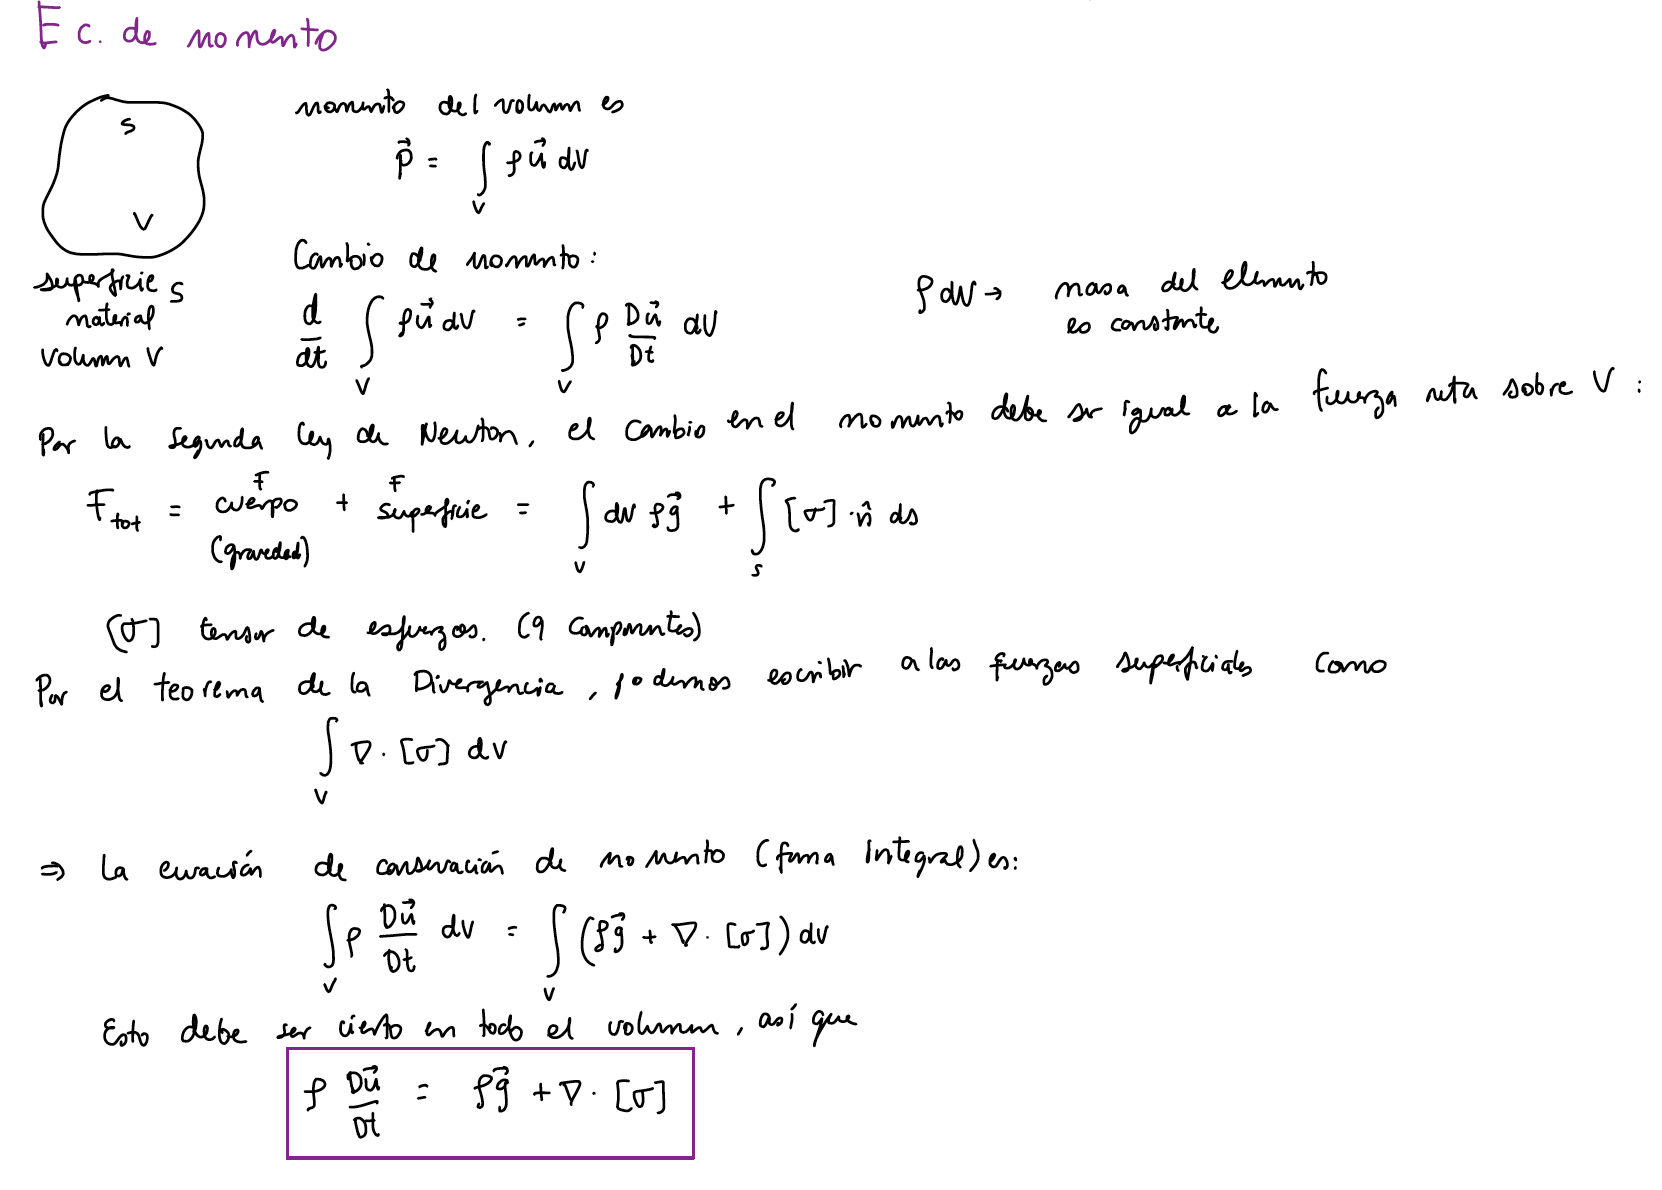 Ec. de momento
S
V
superficie S
material
volumen V
momento del volumen es
p⃗ = ∫_V ρ u⃗ dV
Cambio de momento:
d/dt ∫_V ρ u⃗ dV = ∫_V ρ Du⃗/Dt dV
ρ dV → masa del elemento
es constante
Por la segunda ley de Newton, el cambio en el momento debe ser igual a la fuerza neta sobre V :
F_tot = F cuerpo + F superficie = ∫_V dV ρ g⃗ + ∫_S [σ] · n̂ ds
(gravedad)
[σ] tensor de esfuerzos. (9 componentes)
Por el teorema de la Divergencia, podemos escribir a las fuerzas superficiales como
∫_V ∇ · [σ] dV
⇒ La ecuación de conservación de momento (forma Integral) es:
∫_V ρ Du⃗/Dt dV = ∫_V (ρ g⃗ + ∇ · [σ]) dV
Esto debe ser cierto en todo el volumen, así que
ρ Du⃗/Dt = ρ g⃗ + ∇ · [σ]